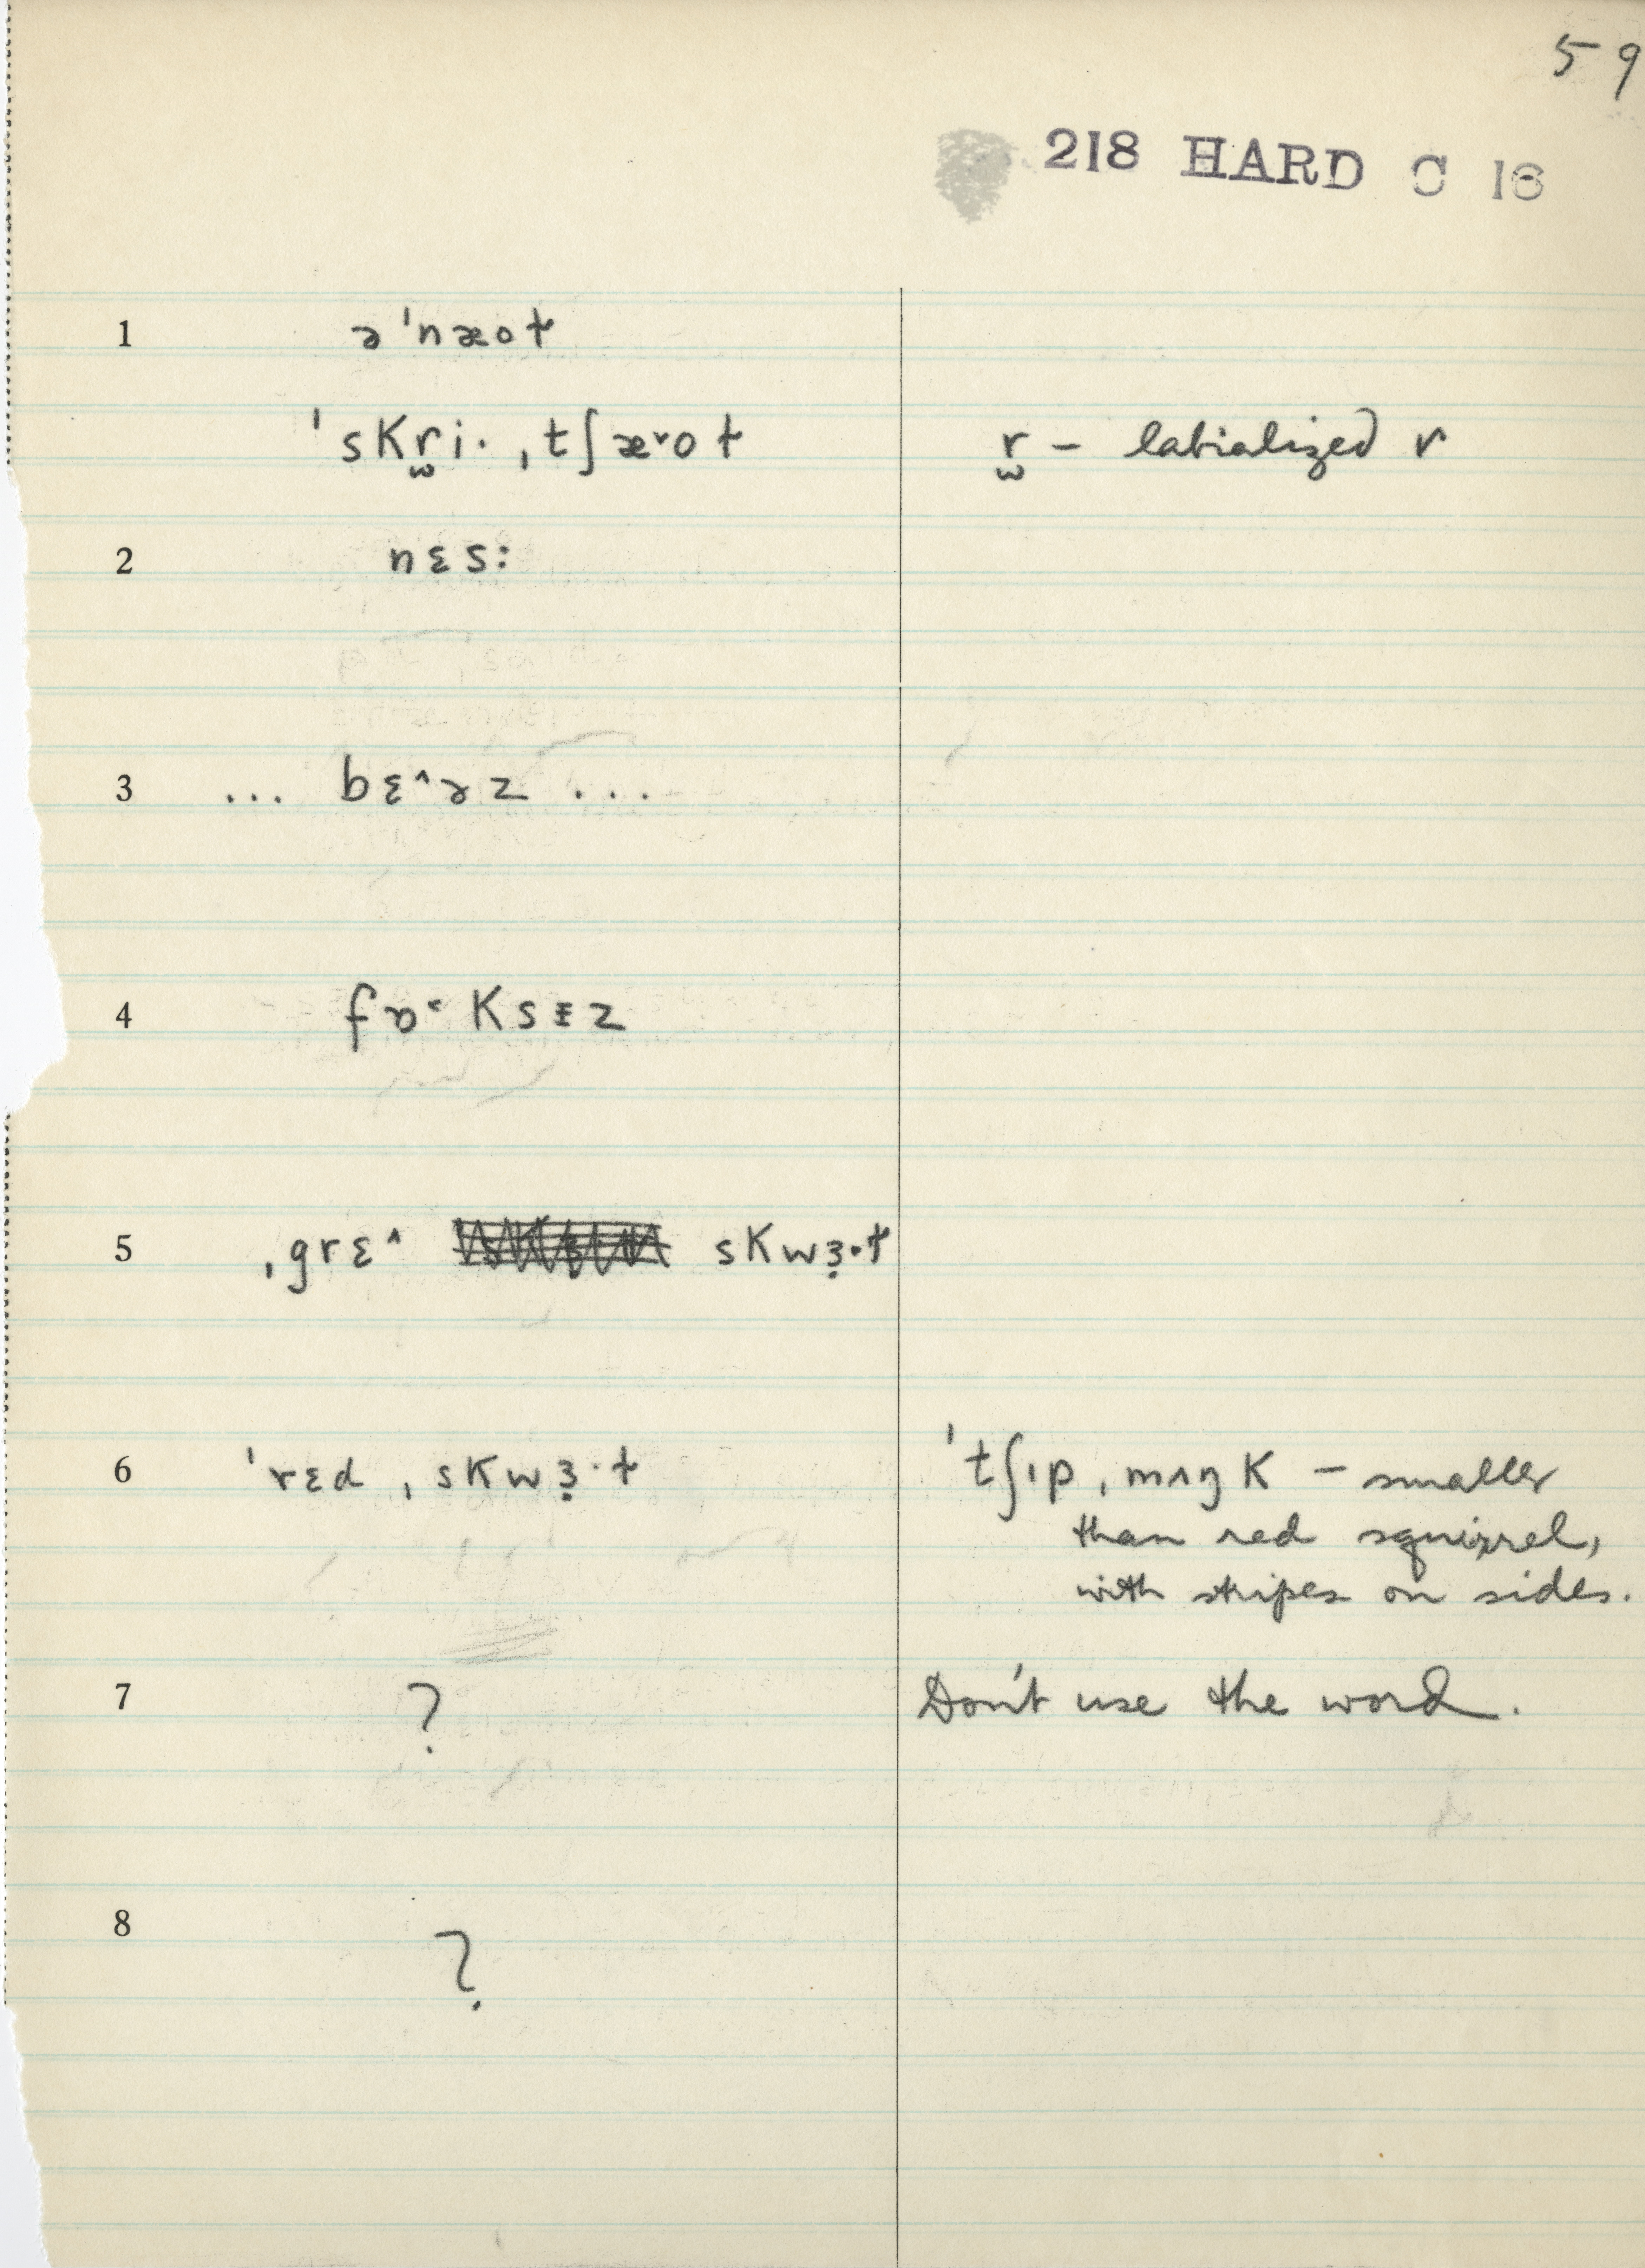 59
218 HARD C 16
1 ə ˈnæoɫ
ˈsKr̫i· ˌtʃæ˅oɫ r̫ – labialized r
2 nɛs:
3 ... bɛ^ɚz ...
4 fɒ˂Ksᵻz
5 ˌgrɛ^ sKwɜ̣·ɫ
6 ˈrɛd ˌsKwɜ̣·ɫ ˈtʃıp ˌmʌŋK – smaller
than red squirrel,
with stripes on sides.
7 ? Don't use the word.
8 ?